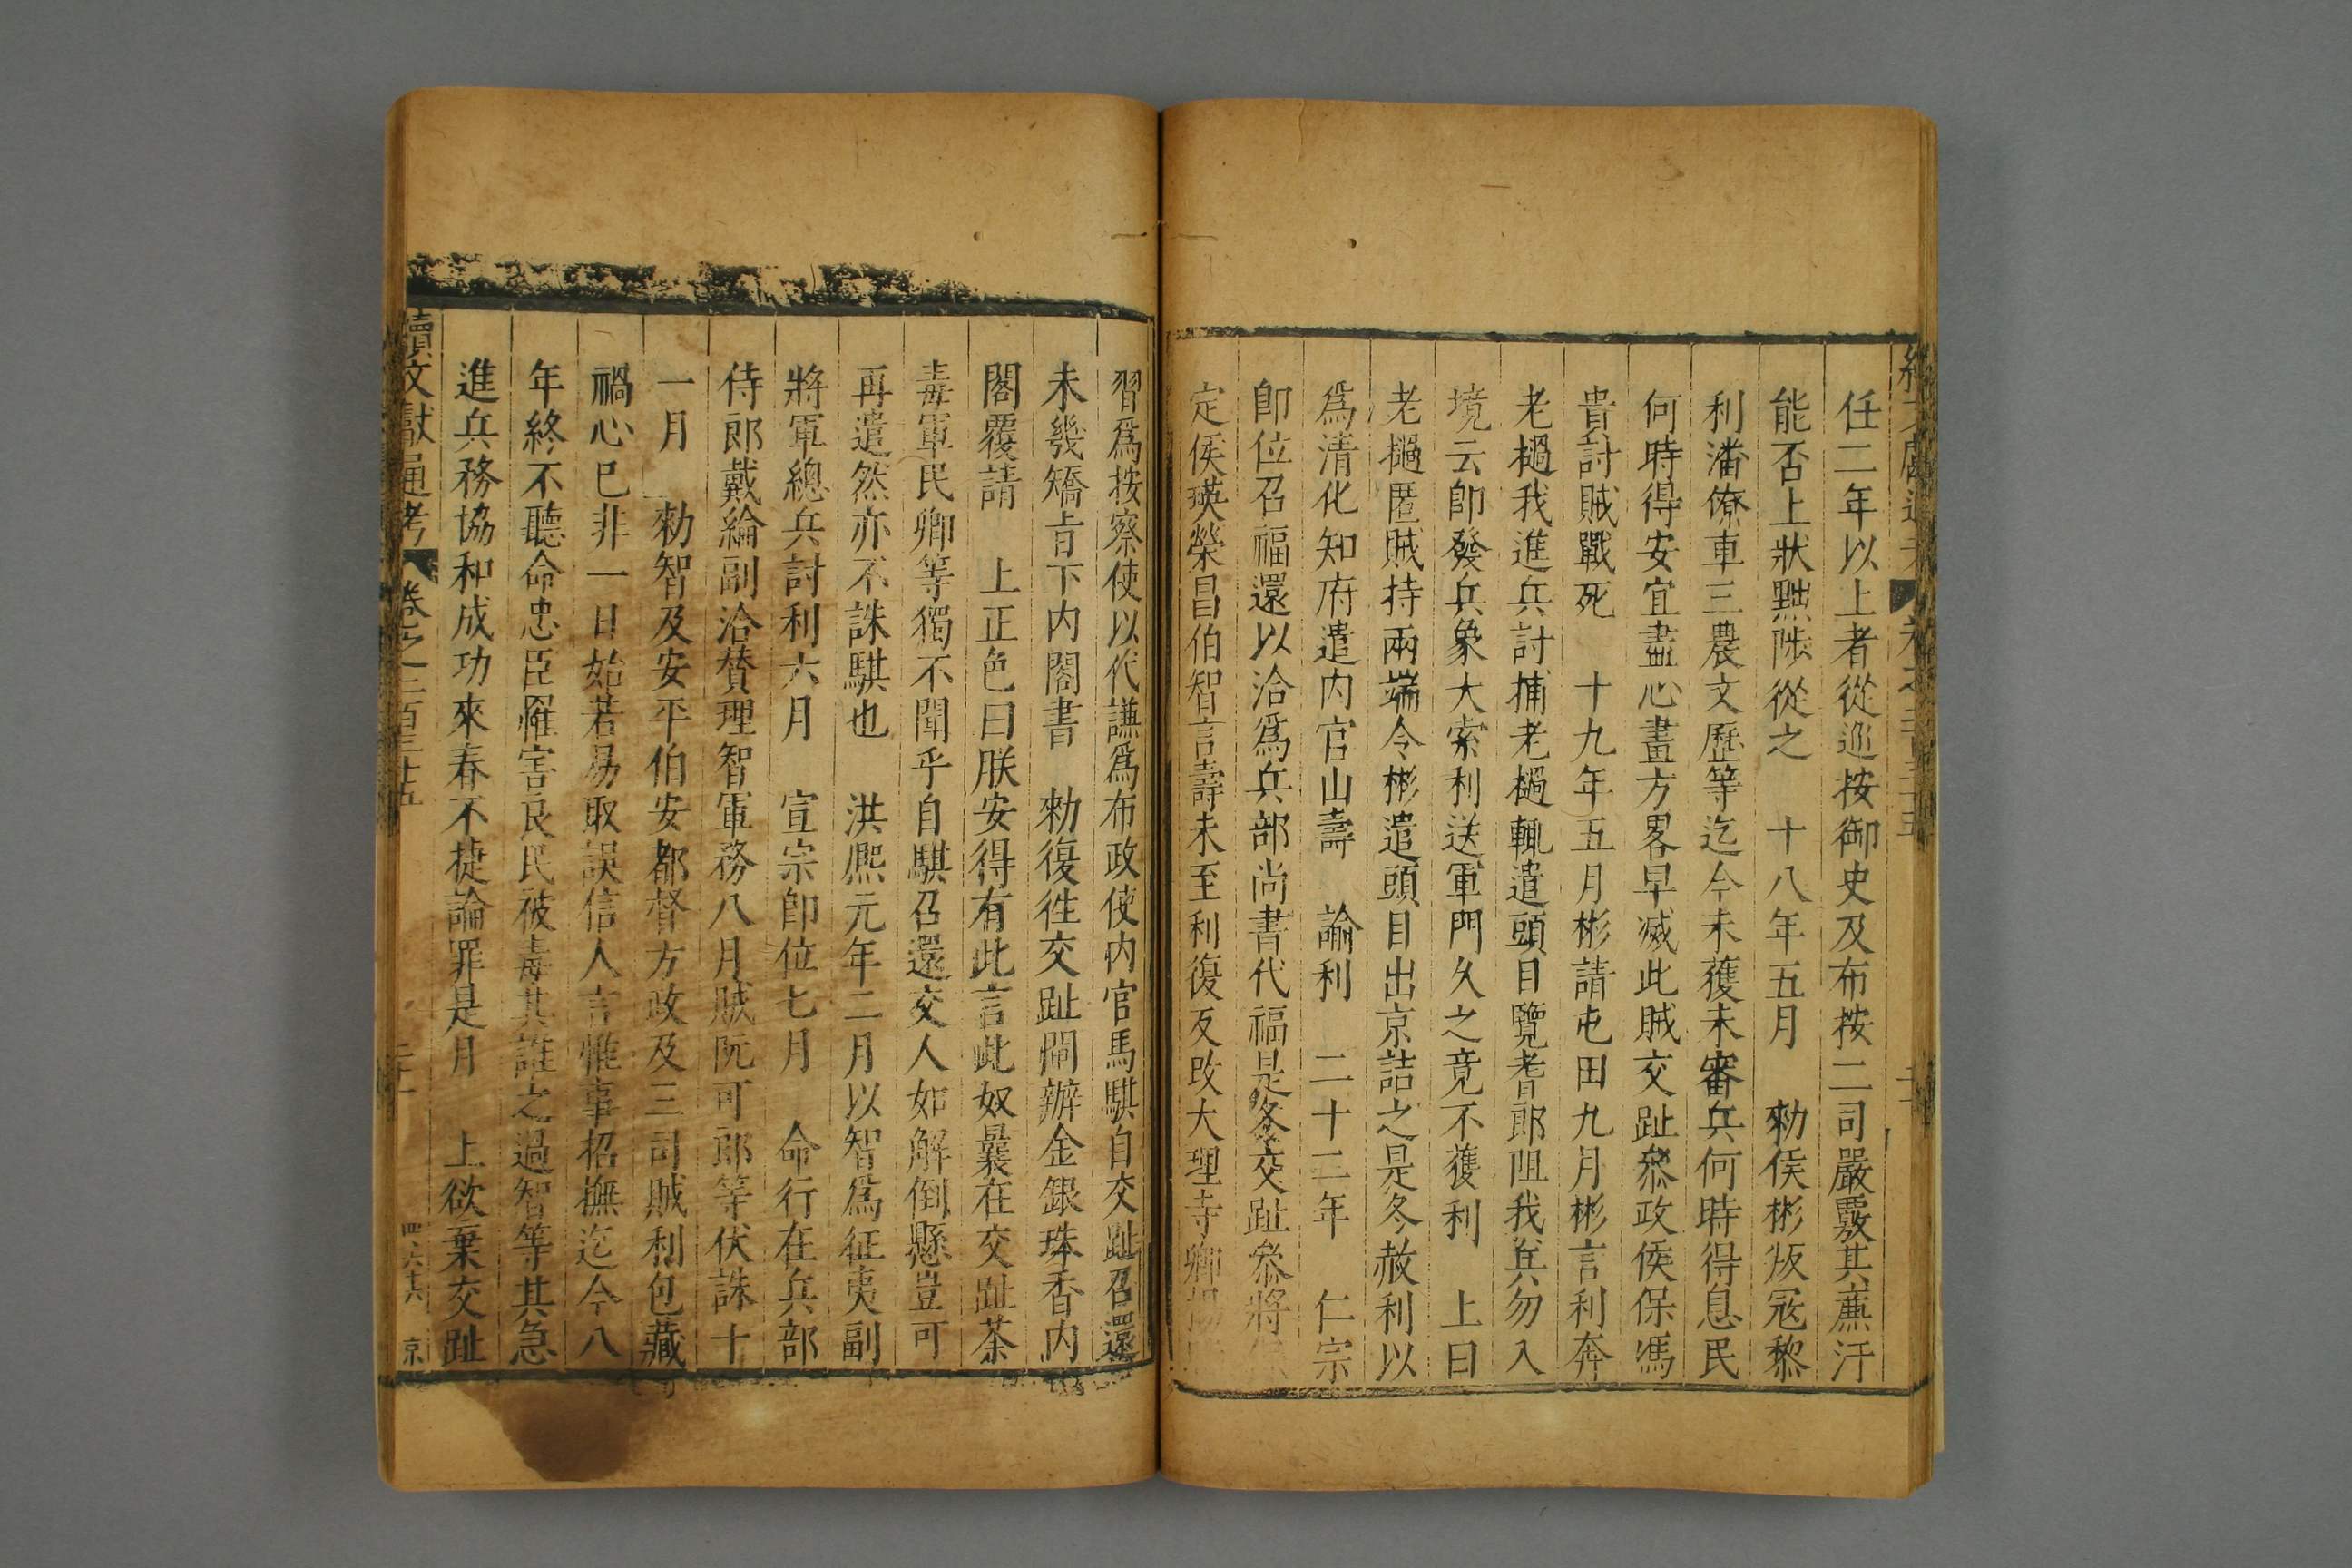 任二年以上者從巡按御史及布按二司嚴覈其亷汙
能否上狀黜陟從之　十八年五月　勑侯彬叛冦黎
利潘僚車三農文歷等迄今未獲未審兵何時得息民
何時得安宜盡心畫方畧早滅此賊交趾叅政侯保馮
貴討賊戰死　十九年五月彬請屯田九月彬言利奔
老撾我進兵討捕老撾輒遣頭目覽者郎阻我兵勿入
境云即發兵象大索利送軍門久之竟不獲利　上曰
老撾匿賊持兩端令彬遣頭目出京詰之是冬赦利以
爲清化知府遣内官山壽　諭利　二十二年　仁宗
即位召福還以洽爲兵部尚書代福是冬交趾叅將
定侯瑛榮昌伯智言壽未至利復反攻大理寺卿
習爲按察使以代謙爲布政使内官馬騏自交趾召還
未幾矯旨下内閣書　勑復徃交趾閘辦金銀珠香内
閣覆請　上正色曰朕安得有此言此奴曩在交趾荼
毒軍民卿等獨不聞乎自騏召還交人如解倒懸豈可
再遣然亦不誅騏也　洪熈元年二月以智爲征夷副
將軍總兵討利六月　宣宗即位七月　命行在兵部
侍郎戴綸副洽賛理智軍務八月賊阮可郎等伏誅十
一月　勑智及安平伯安都督方政及三司賊利包藏
禍心巳非一日始若易取誤信人言惟事招撫迄今八
年終不聽命忠臣罹害良民被毒其誰之過智等其急
進兵務協和成功來春不捷論罪是月　上欲棄交趾
續文獻通考　卷之二百三十五　四六六　京